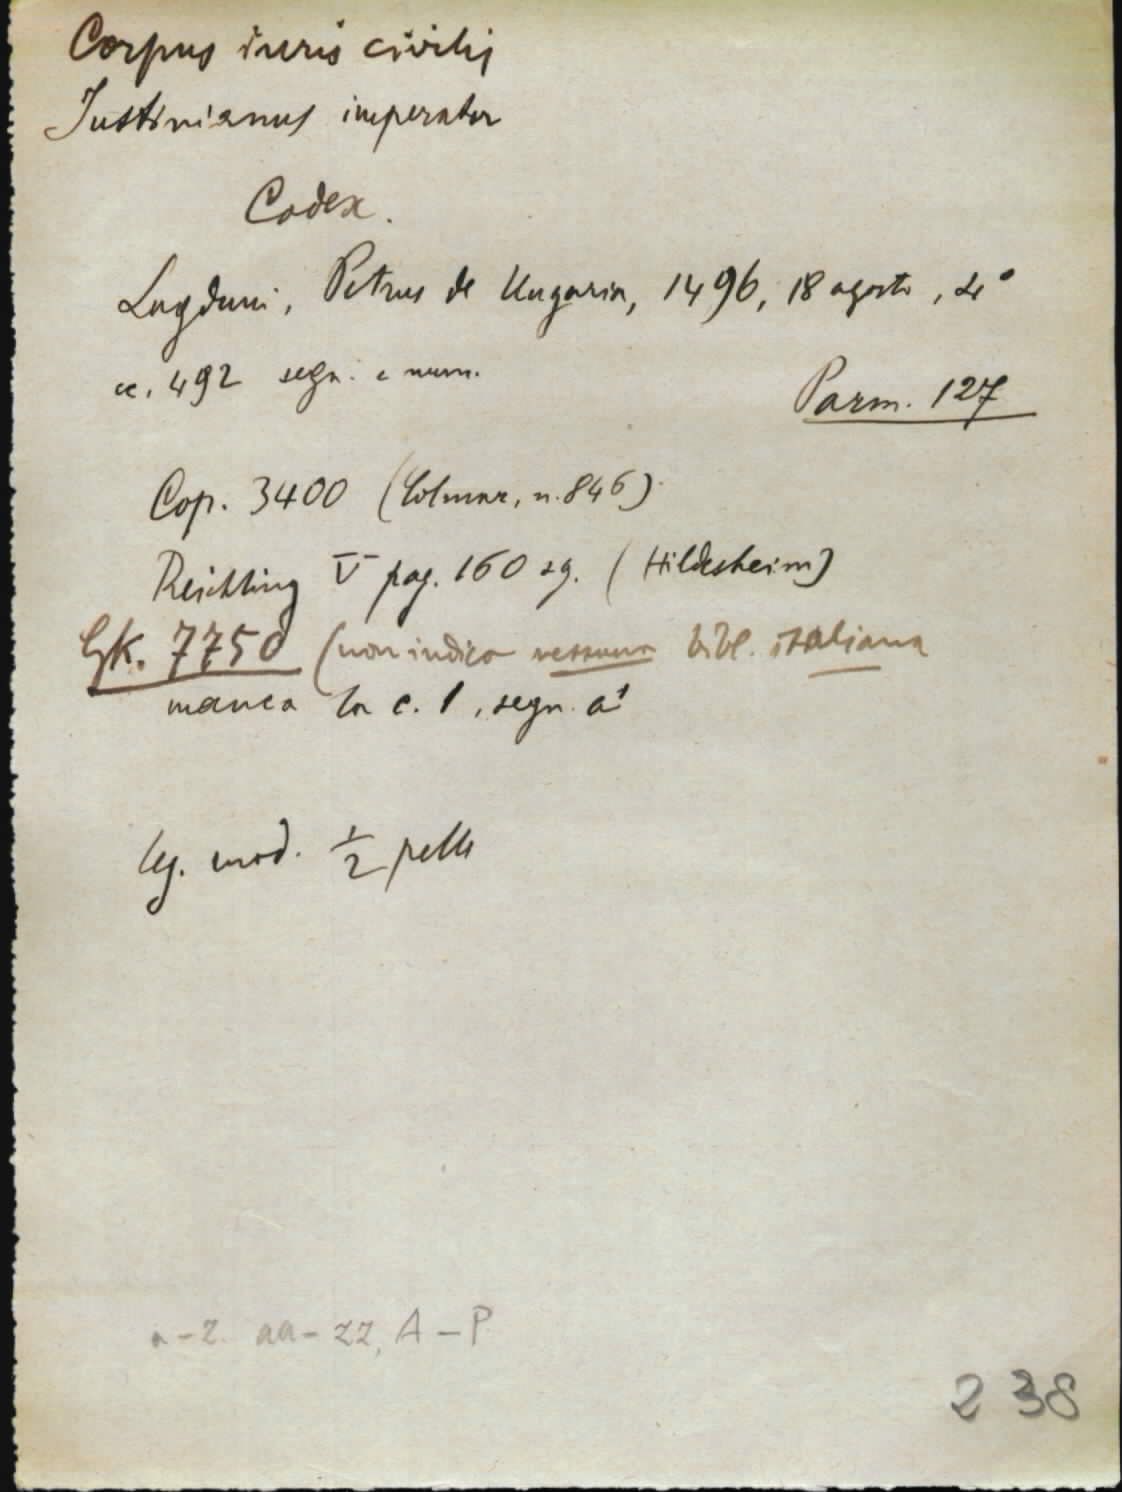 Corpus iuris civilis
Iustinianus imperator
Codex.
Lugduni, Petrus de Ungaria, 1496, 18 agosto, 4°
cc. 492 segn. e num.
Parm. 127
Cop. 3400 (Colmar, n. 846)
Reichling V pag. 160 sg. (Hildesheim)
GK. 7750 (non indica nessuna bibl. italiana
manca la c. 1, segn. a¹
leg. mod. ½ pelle
a-z. aa-zz, A-P
238